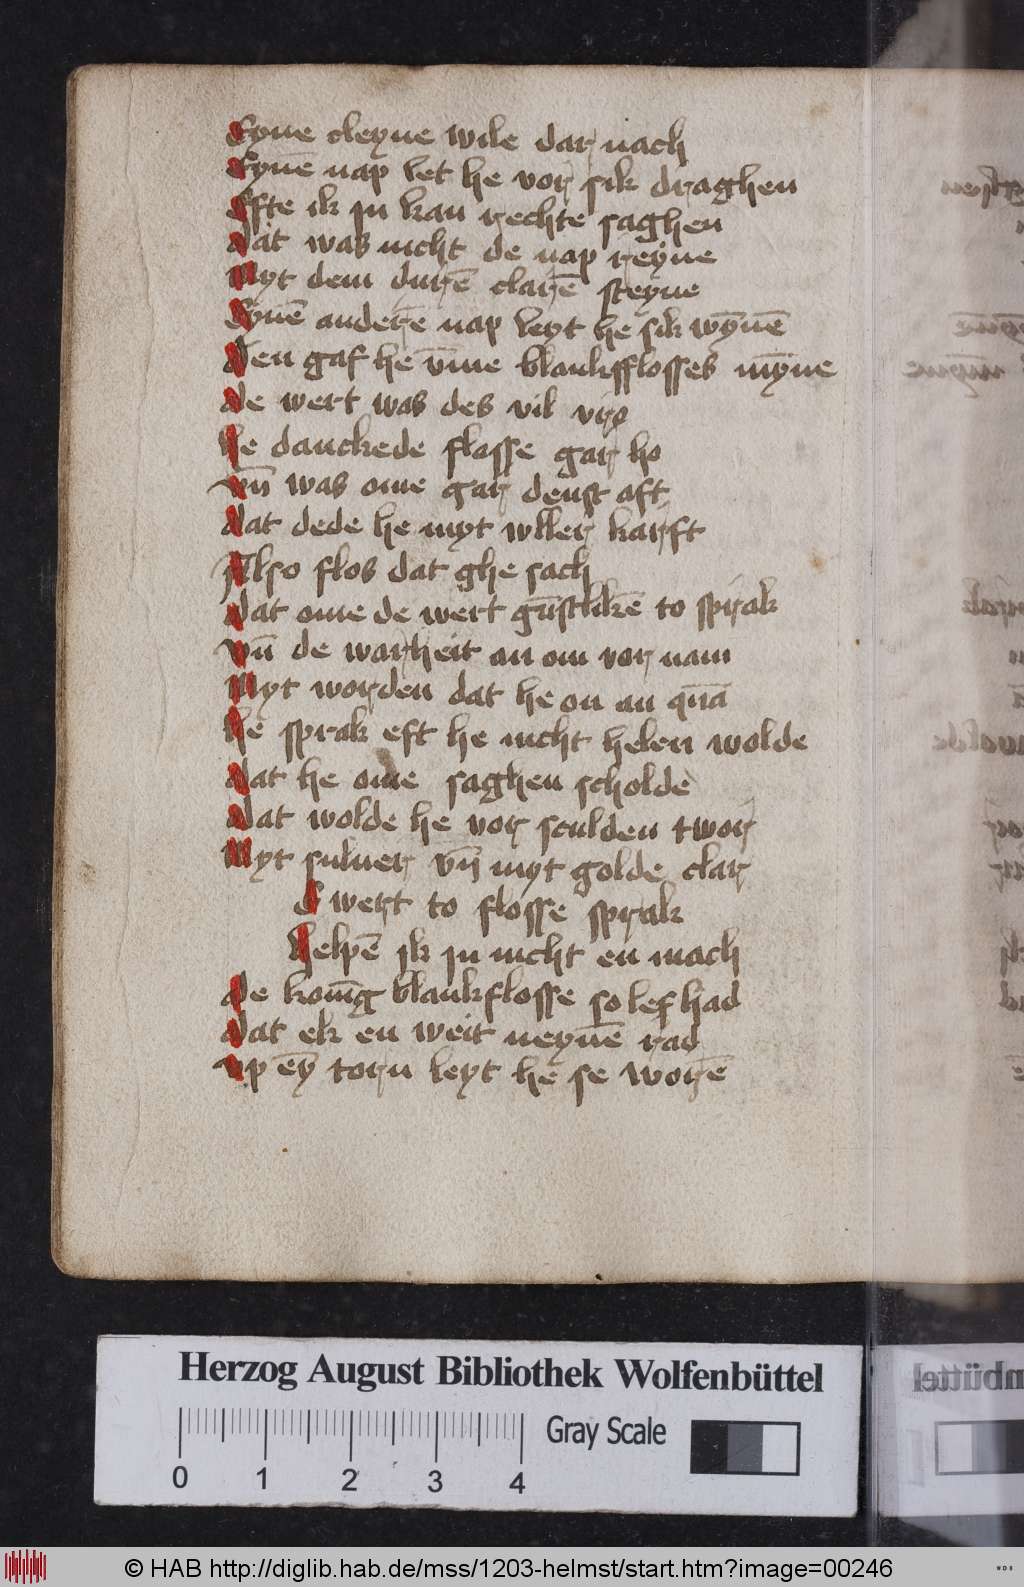 Eyne cleyne wile dar nach
Eynē nap let he vor sik draghen
Efte ik ju kan rechte saghen
dat was nicht de nap reyne
Myt dem durē clarē steyne
Eynē anderē nap leyt he sik wȳnē
Den gaf he v̄me blankfflosses mȳne
de wert was des vil vro
he danckede flosse gar ho
vn̄ was ome gar denst aft
dat dede he myt wller karft
Also flos dat ghe sach
dat ome de wert gāstlikē to sprak
vn̄ de warheit an om vor nam
Myt worden dat he on an quā
he sprak eft he nicht helen wolde
dat he ome saghen scholde
dat wolde he vor sculden twor
Myt suluer vn̄ myt golde clar
E wert to flosse sprak
helpē ik ju nicht en mach
de konīg blankflosse so lef had
dat ek en weit neynē rad
vp ēy torn leyt he se worē
Herzog August Bibliothek Wolfenbüttel
0 1 2 3 4
Gray Scale
© HAB http://diglib.hab.de/mss/1203-helmst/start.htm?image=00246